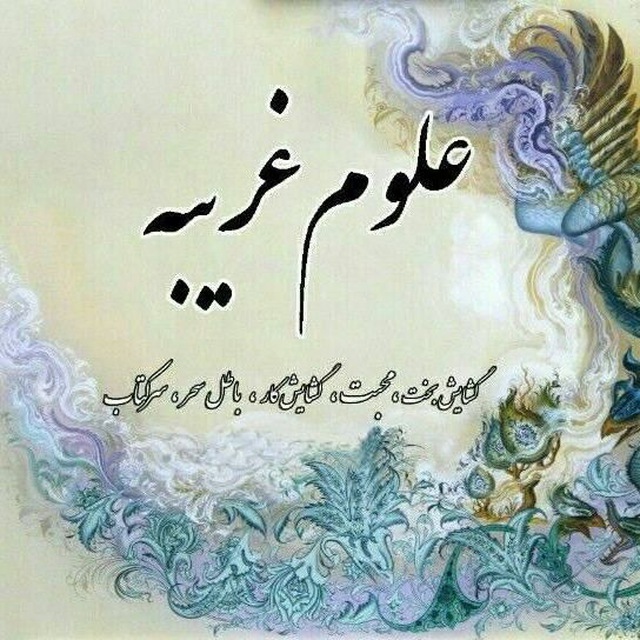 علوم غریبه
گشایش بخت، محبت، گشایش کار، باطل سحر، سرکتاب